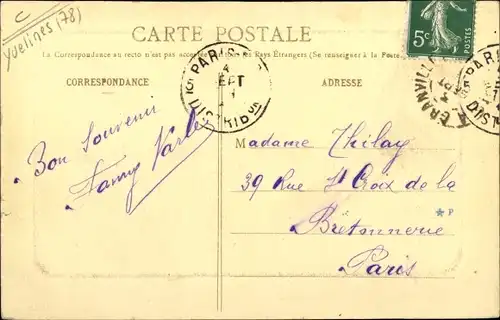 C
Yvelines (78)
CARTE POSTALE
La Correspondance au recto n'est pas acceptée les Pays Étrangers (Se renseigner à la Poste.
CORRESPONDANCE
ADRESSE
5c
PARIS
4
SEPT
DISTRIBON
GRANVILLE
PARIS
DIST
Bon Souvenir
Fanny
Madame Thilay
39 Rue St Croix de la
Bretonnerie
Paris
* P